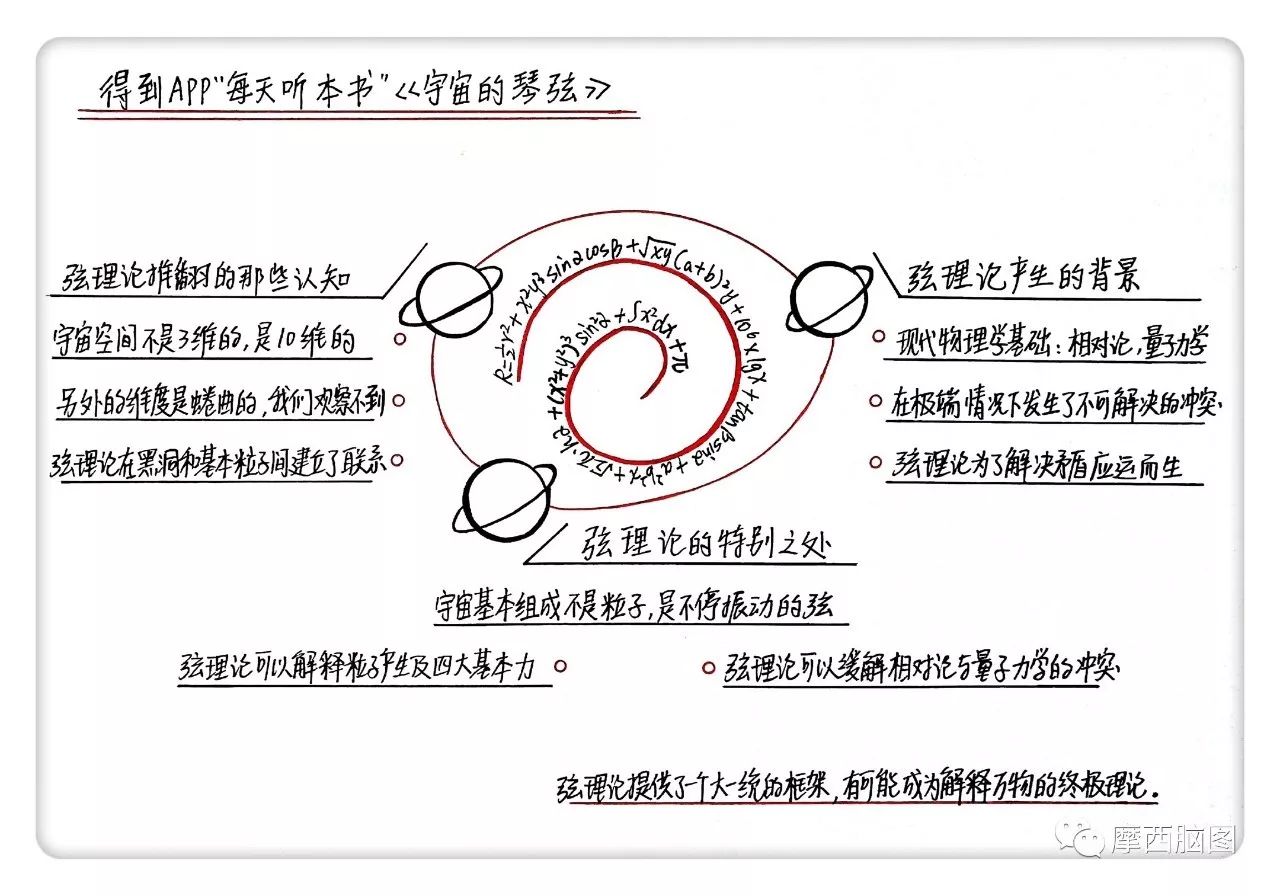 得到APP"每天听本书"《宇宙的琴弦》
弦理论推翻的那些认知
宇宙空间不是3维的,是10维的
另外的维度是蜷曲的,我们观察不到
弦理论在黑洞和基本粒子间建立了联系
R=½r²+x²y³sin2cosβ+√xy(a+b)²y+10⁶xlgx+tanβsin2+a²b²x
(x²+y³)³sin²2+∫x²dx+π
弦理论产生的背景
现代物理学基础:相对论,量子力学
在极端情况下发生了不可解决的冲突
弦理论为了解决矛盾应运而生
弦理论的特别之处
宇宙基本组成不是粒子,是不停振动的弦
弦理论可以解释粒子产生及四大基本力
弦理论可以缓解相对论与量子力学的冲突
弦理论提供了一个大一统的框架,有可能成为解释万物的终极理论.
摩西脑图